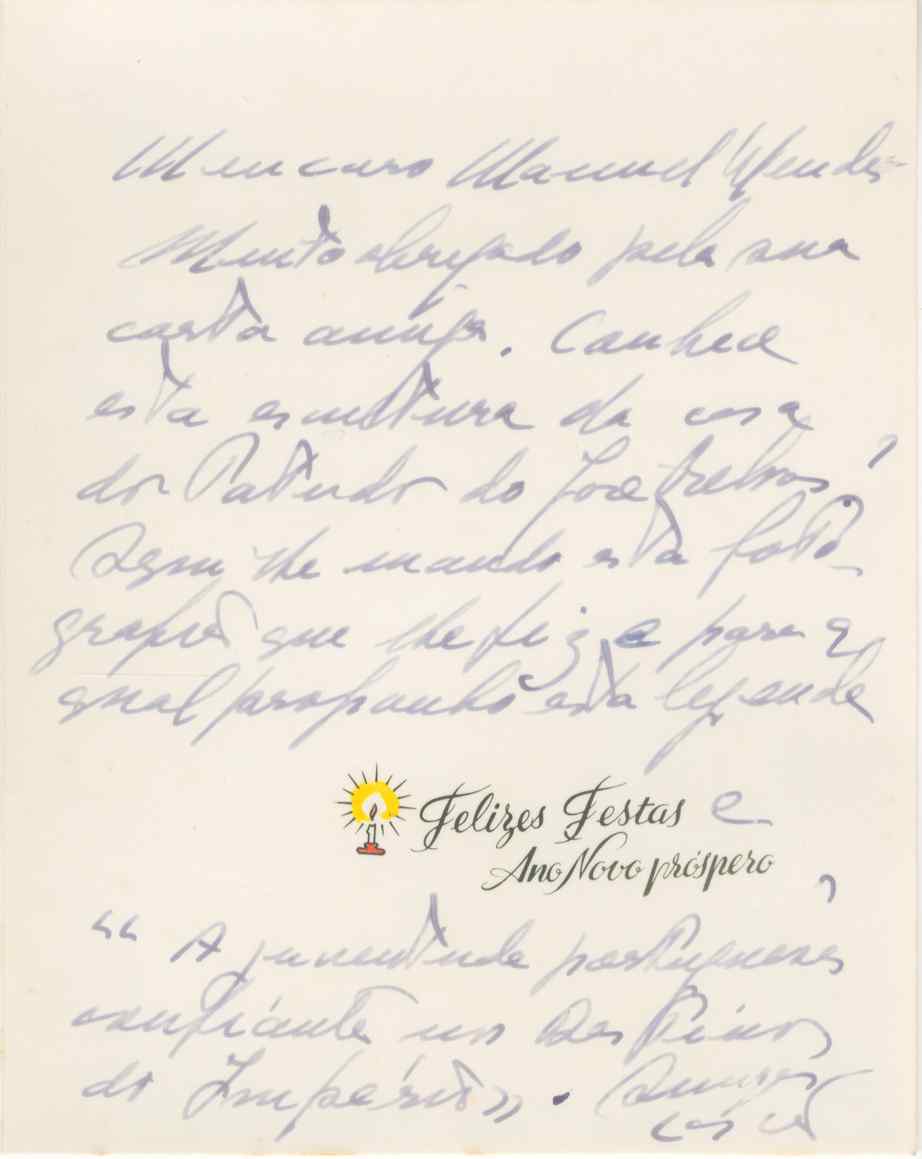 Meu caro Manuel Mendes
Muito obrigado pela sua
carta amiga. Conhece
esta escultura da casa
dos Patudos do José Relvas?
Aqui lhe mando esta foto-
grafia que lhe fiz e para a
qual propunha esta legenda
Felizes Festas e
Ano Novo próspero
"A juventude portuguesa,
confiante nos destinos
do Império". Amigo